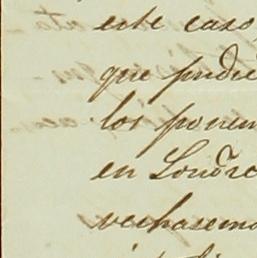 este caso
que pudie
los ponem
en Londre
vechasemo